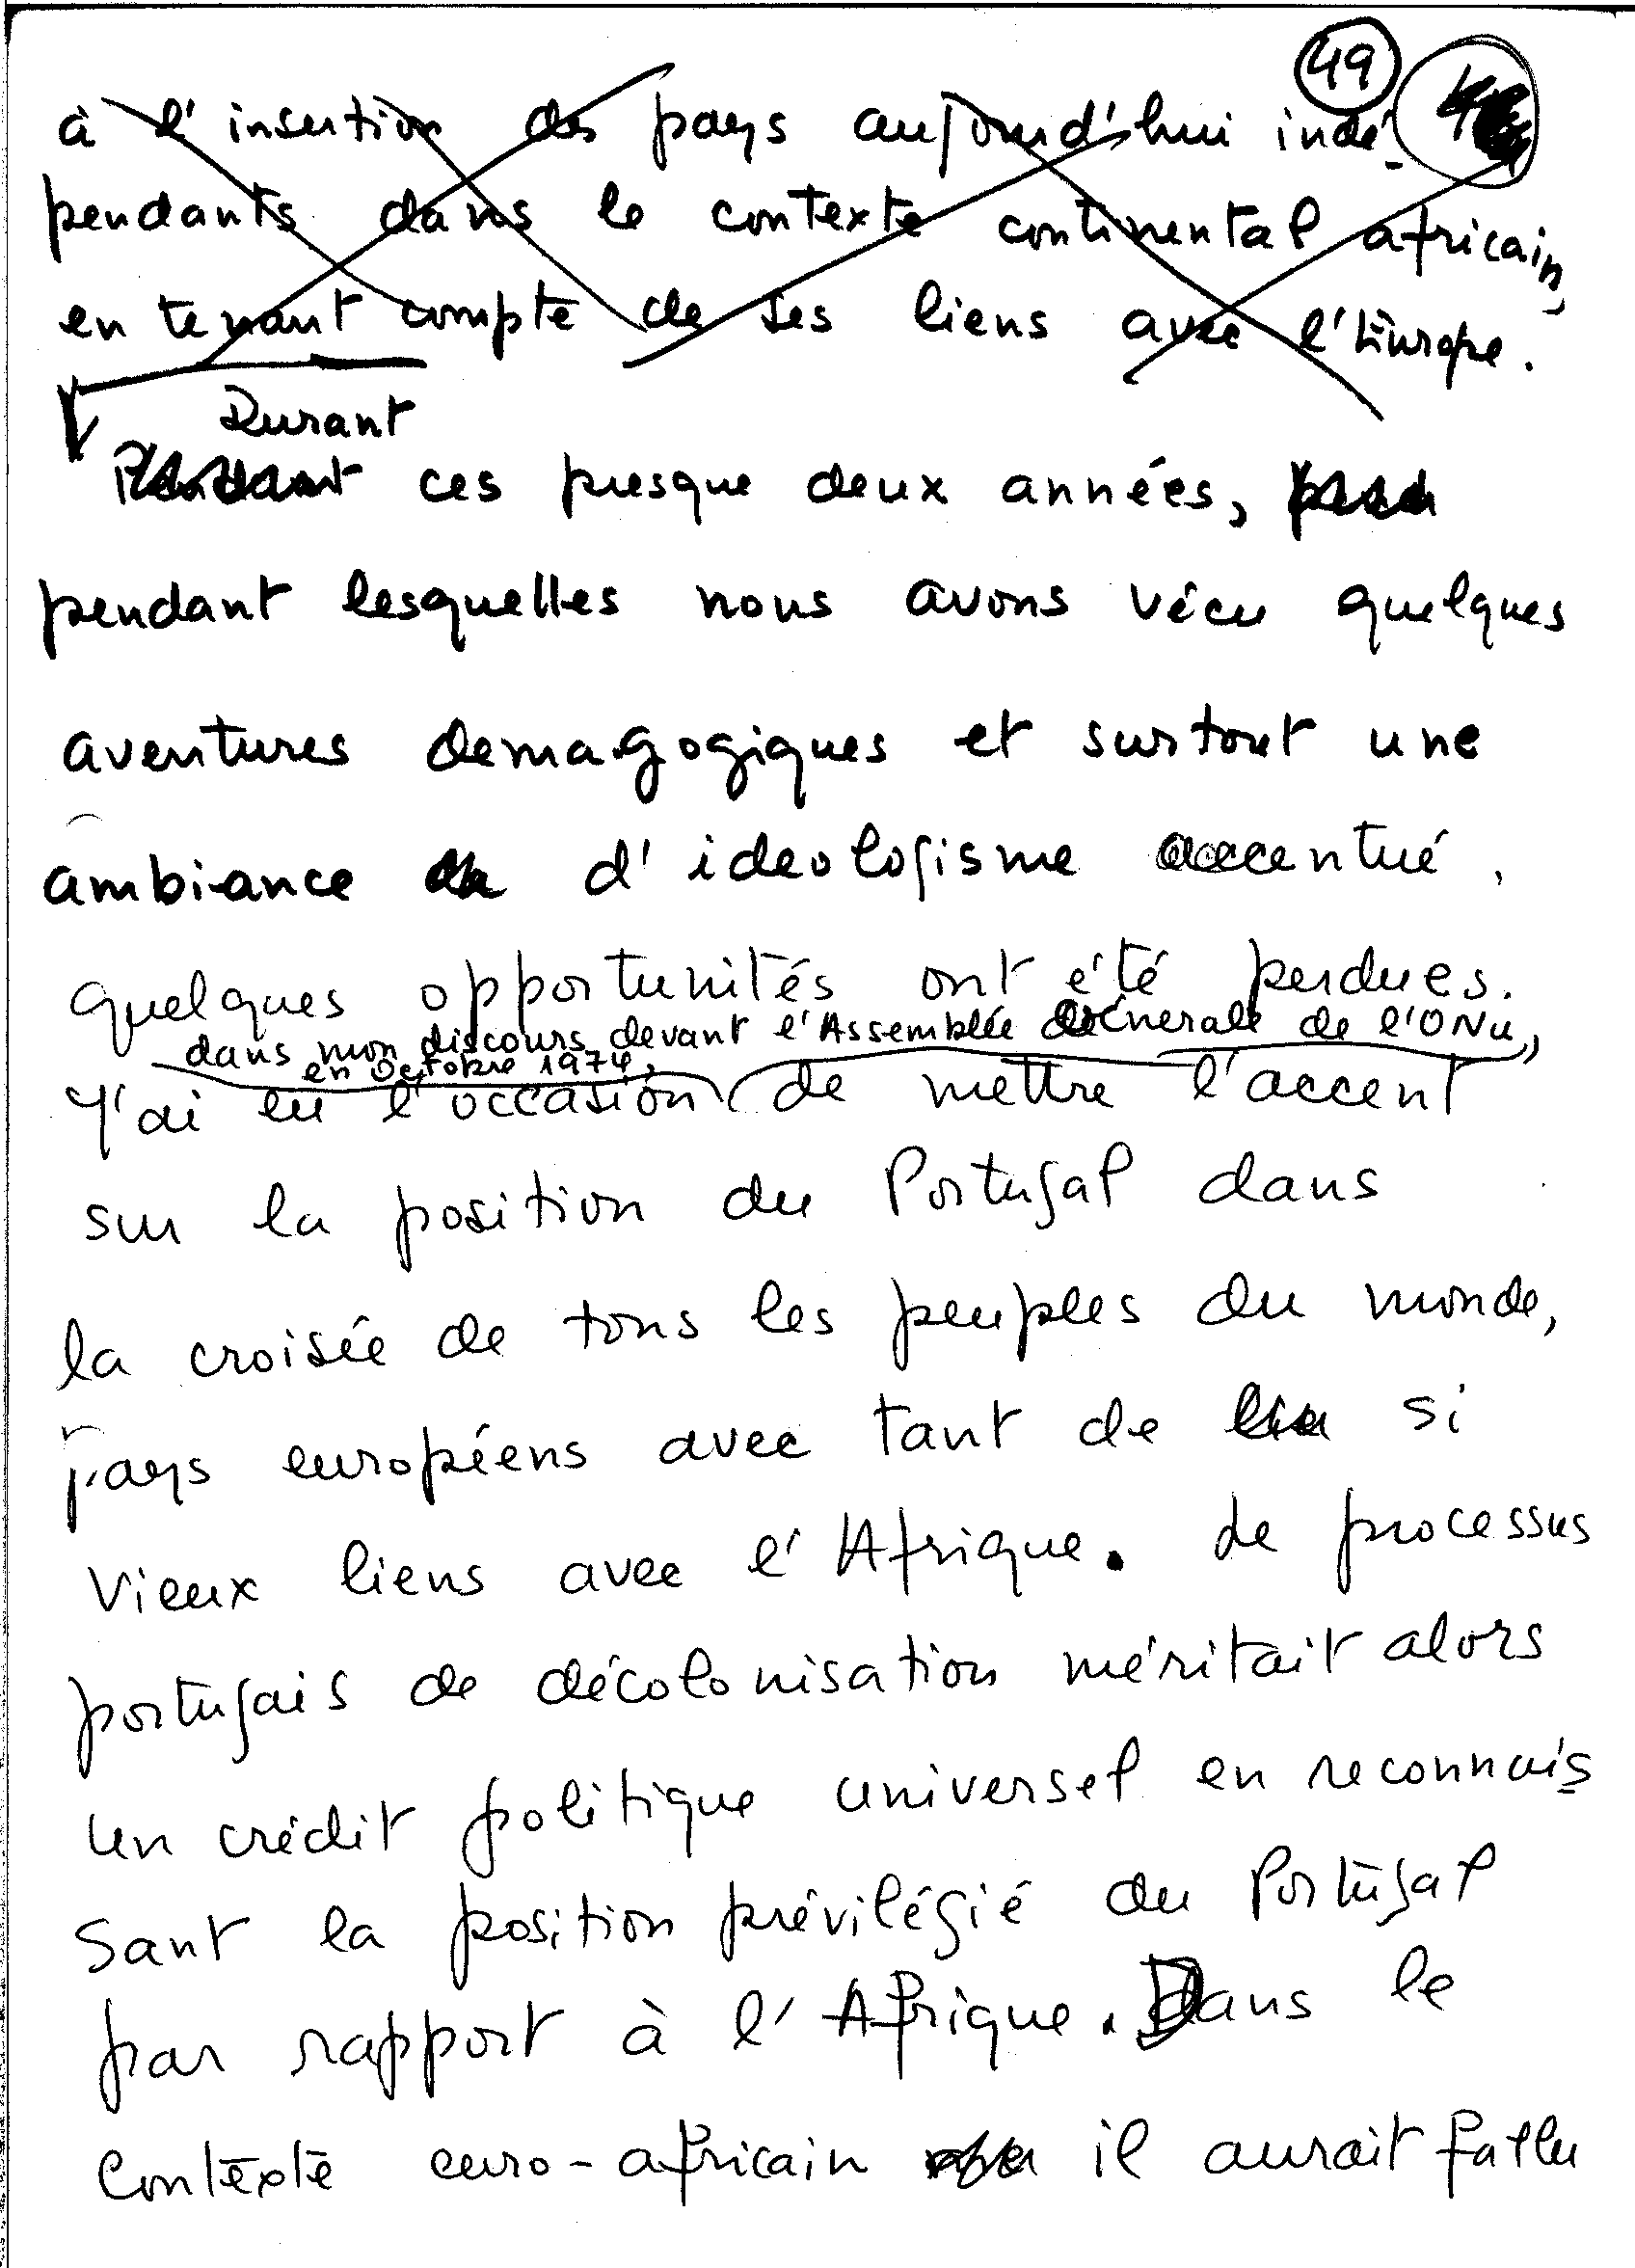 49
à l'insertion des pays aujourd'hui indé-
pendants dans le contexte continental africain,
en tenant compte de ses liens avec l'Europe.
Durant
Pendant ces presque deux années,
pendant lesquelles nous avons vécu quelques
aventures demagogiques et surtout une
ambiance d'ideologisme accentué,
quelques opportunités ont été perdues.
dans mon discours devant l'Assemblée Génerale de l'ONU,
en Octobre 1974,
J'ai eu l'occasion de mettre l'accent
sur la position du Portugal dans
la croisée de tous les peuples du monde,
pays européens avec tant de si
vieux liens avec l'Afrique. Le processus
portugais de décolonisation méritait alors
un crédit politique universel en reconnais
sant la position prévilégié du Portugal
par rapport à l'Afrique. Dans le
contexte euro-africain il aurait fallu